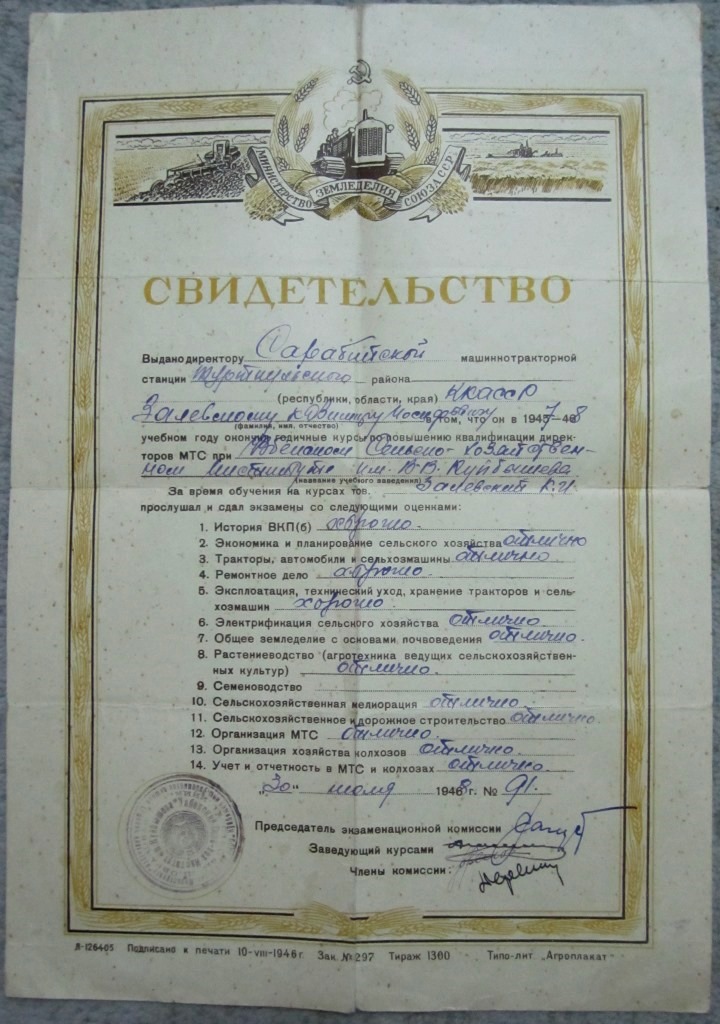 МИНИСТЕРСТВО ЗЕМЛЕДЕЛИЯ СОЮЗА ССР
СВИДЕТЕЛЬСТВО
Выдано директору Сарабийской машиннотракторной
станции Турткульского района
(республики, области, края) ККАССР
Залевскому в том, что он в 1947-48
(фамилия, имя, отчество)
учебном году окончил годичные курсы по повышению квалификации дирек-
торов МТС при Сельско-хозяйствен-
ном институте им. В.В. Куйбышева
(название учебного заведения)
За время обучения на курсах тов. Залевский К.И.
прослушал и сдал экзамены со следующими оценками:
1. История ВКП(б) хорошо.
2. Экономика и планирование сельского хозяйства отлично
3. Тракторы, автомобили и сельхозмашины отлично.
4. Ремонтное дело хорошо.
5. Эксплоатация, технический уход, хранение тракторов и сель-
хозмашин хорошо.
6. Электрификация сельского хозяйства отлично.
7. Общее земледелие с основами почвоведения отлично.
8. Растениеводство (агротехника ведущих сельскохозяйствен-
ных культур) отлично.
9. Семеноводство
10. Сельскохозяйственная мелиорация отлично
11. Сельскохозяйственное и дорожное строительство отлично.
12. Организация МТС отлично.
13. Организация хозяйства колхозов отлично.
14. Учет и отчетность в МТС и колхозах отлично.
"30" 1948 г. № 91.
Председатель экзаменационной комиссии
Заведующий курсами
Члены комиссии:
Л-126405 Подписано к печати 10-VIII-1946 г. Зак. № 297 Тираж 1300 Типо-лит „Агроплакат"